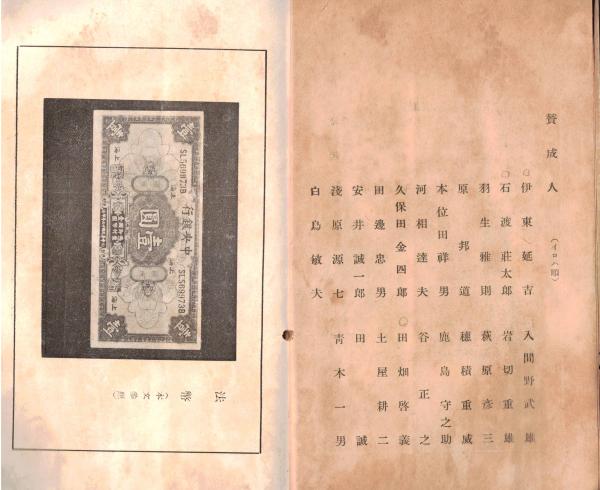 賛成人（イロハ順）
○伊東延吉　入間野武雄
○石渡莊太郎　岩切重雄
羽生雅則　荻原彦三
原邦道　穗積重威
本位田祥男　鹿島守之助
河相達夫　谷正之
久保田金四郎　○田畑啓義
田邊忠男　土屋耕二
安井誠一郎　田誠
淺原源七　青木一男
白鳥敏夫
法幣（本文參照）
中央銀行
壹圓
SL569973B
SL569973B
上海
上海
壹
壹
壹
壹